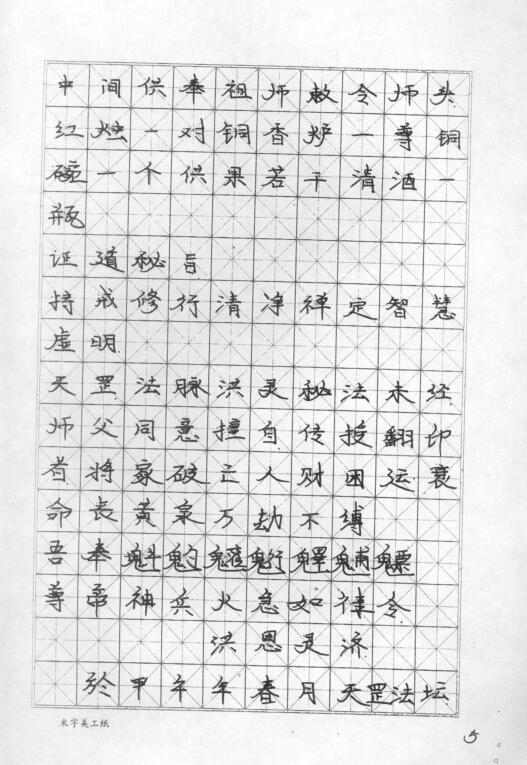 中间供奉祖师敕令师头
红烛一对铜香炉一尊铜
碗一个供果若干清酒一
瓶
证道秘旨
持戒修行清净禅定智慧
虚明
天罡法脉洪灵秘法未经
师父同意擅自传授翻印
者将家破亡人财困运衰
命丧黄泉万劫不缚
吾奉魁
尊帝神兵火急如律令
洪恩灵济
於甲午年春月天罡法坛
米字美工纸
5